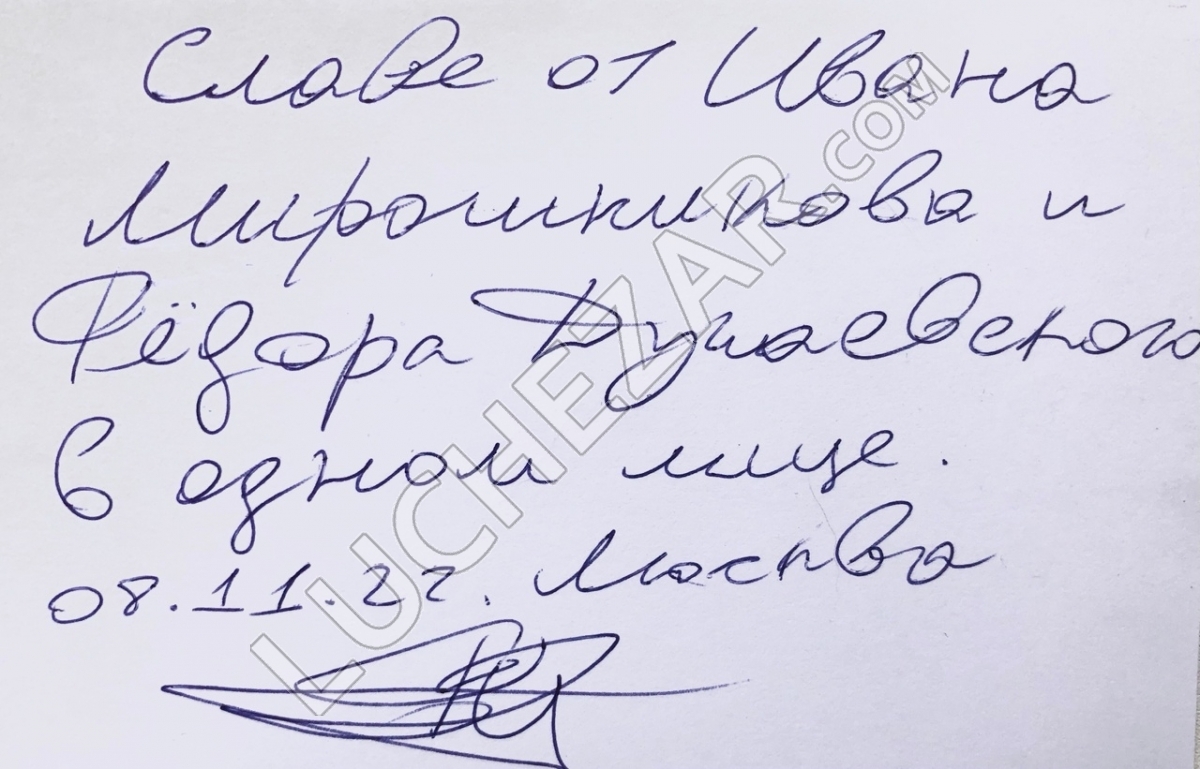 Славе от Ивана
Мирошникова и
Фёдора Дунаевского
в одном лице.
08.11.22. Москва
LUCHEZAR.COM